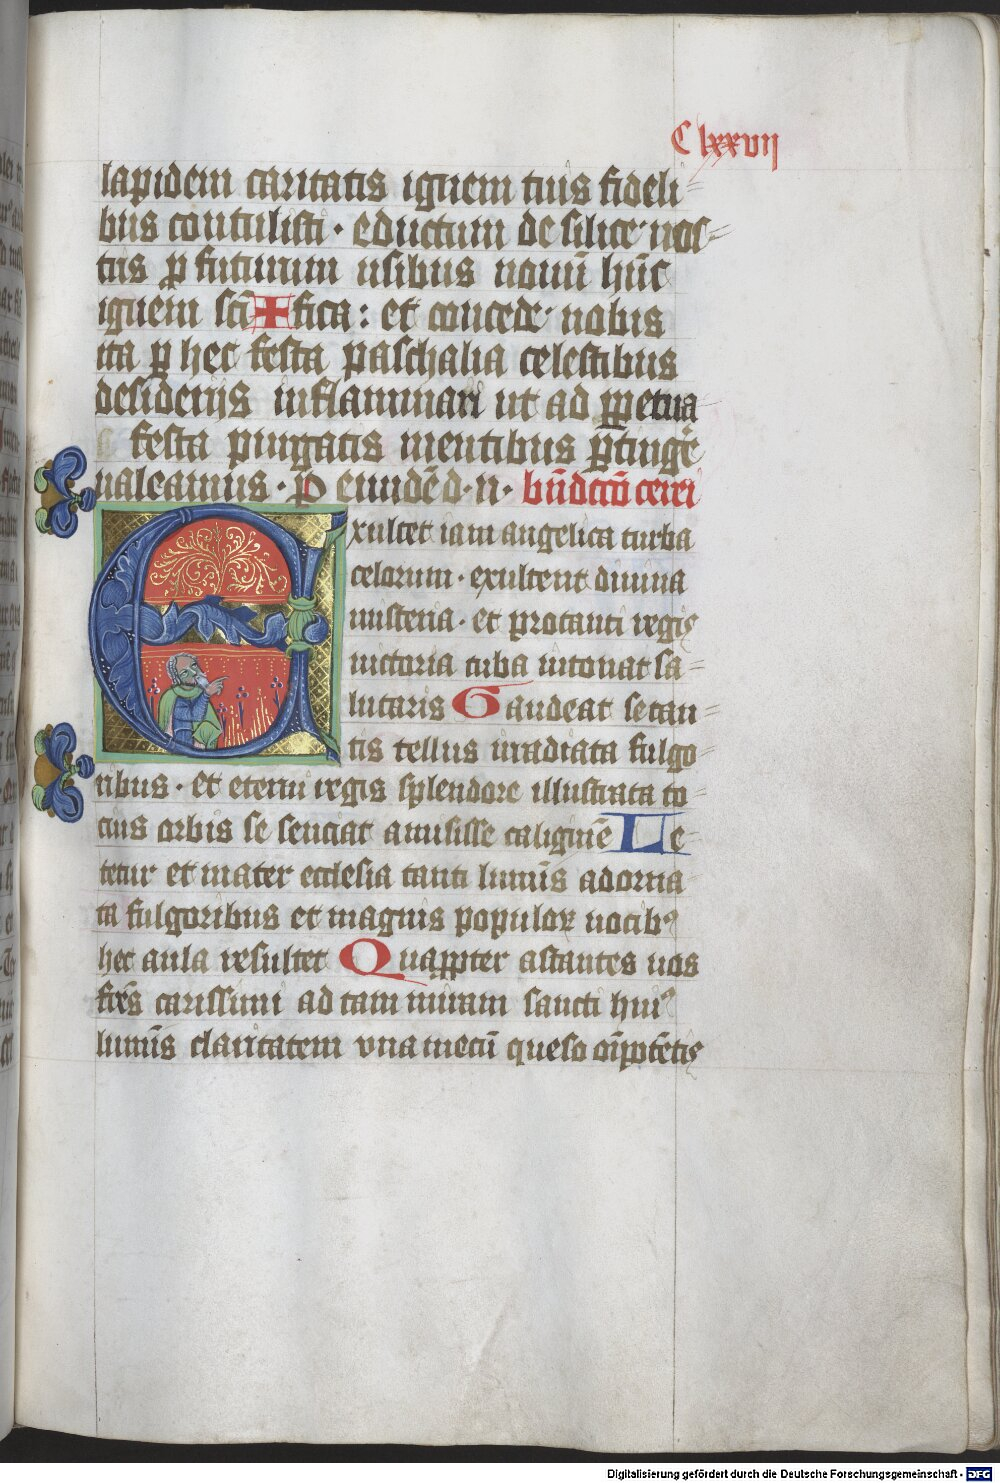 C lxxvij
lapidem caritatis ignem tuis fideli-
bus contulisti · eductum de silice nos-
tris ꝓ futurum usibus nouū hūc
ignem scī✠fica : et concede nobis
ita ꝑ hec festa paschalia celestibus
desiderijs inflammari ut ad ꝑpetua
festa purgatis mentibus ꝑtingē
ualeamus · P eundē d · n · bn̄dctō cerei
Exultet iam angelica turba
celorum · exultent diuina
misteria · et pro tanti regis
uictoria tuba intonat sa-
lutaris Gaudeat se tan-
tis tellus irradiata fulgo-
ribus · et eterni regis splendore illustrata to-
cius orbis se senciat amisisse caliginē Le-
tetur et mater ecclesia tanti lumīs adorna-
ta fulgoribus et magnis populoꝝ uocibꝰ
hec aula resultet Quaꝓpter astantes uos
frēs carissimi ad tam miram sancti huiꝰ
lumīs claritatem vna mecū queso oīpotētis
Digitalisierung gefördert durch die Deutsche Forschungsgemeinschaft - DFG